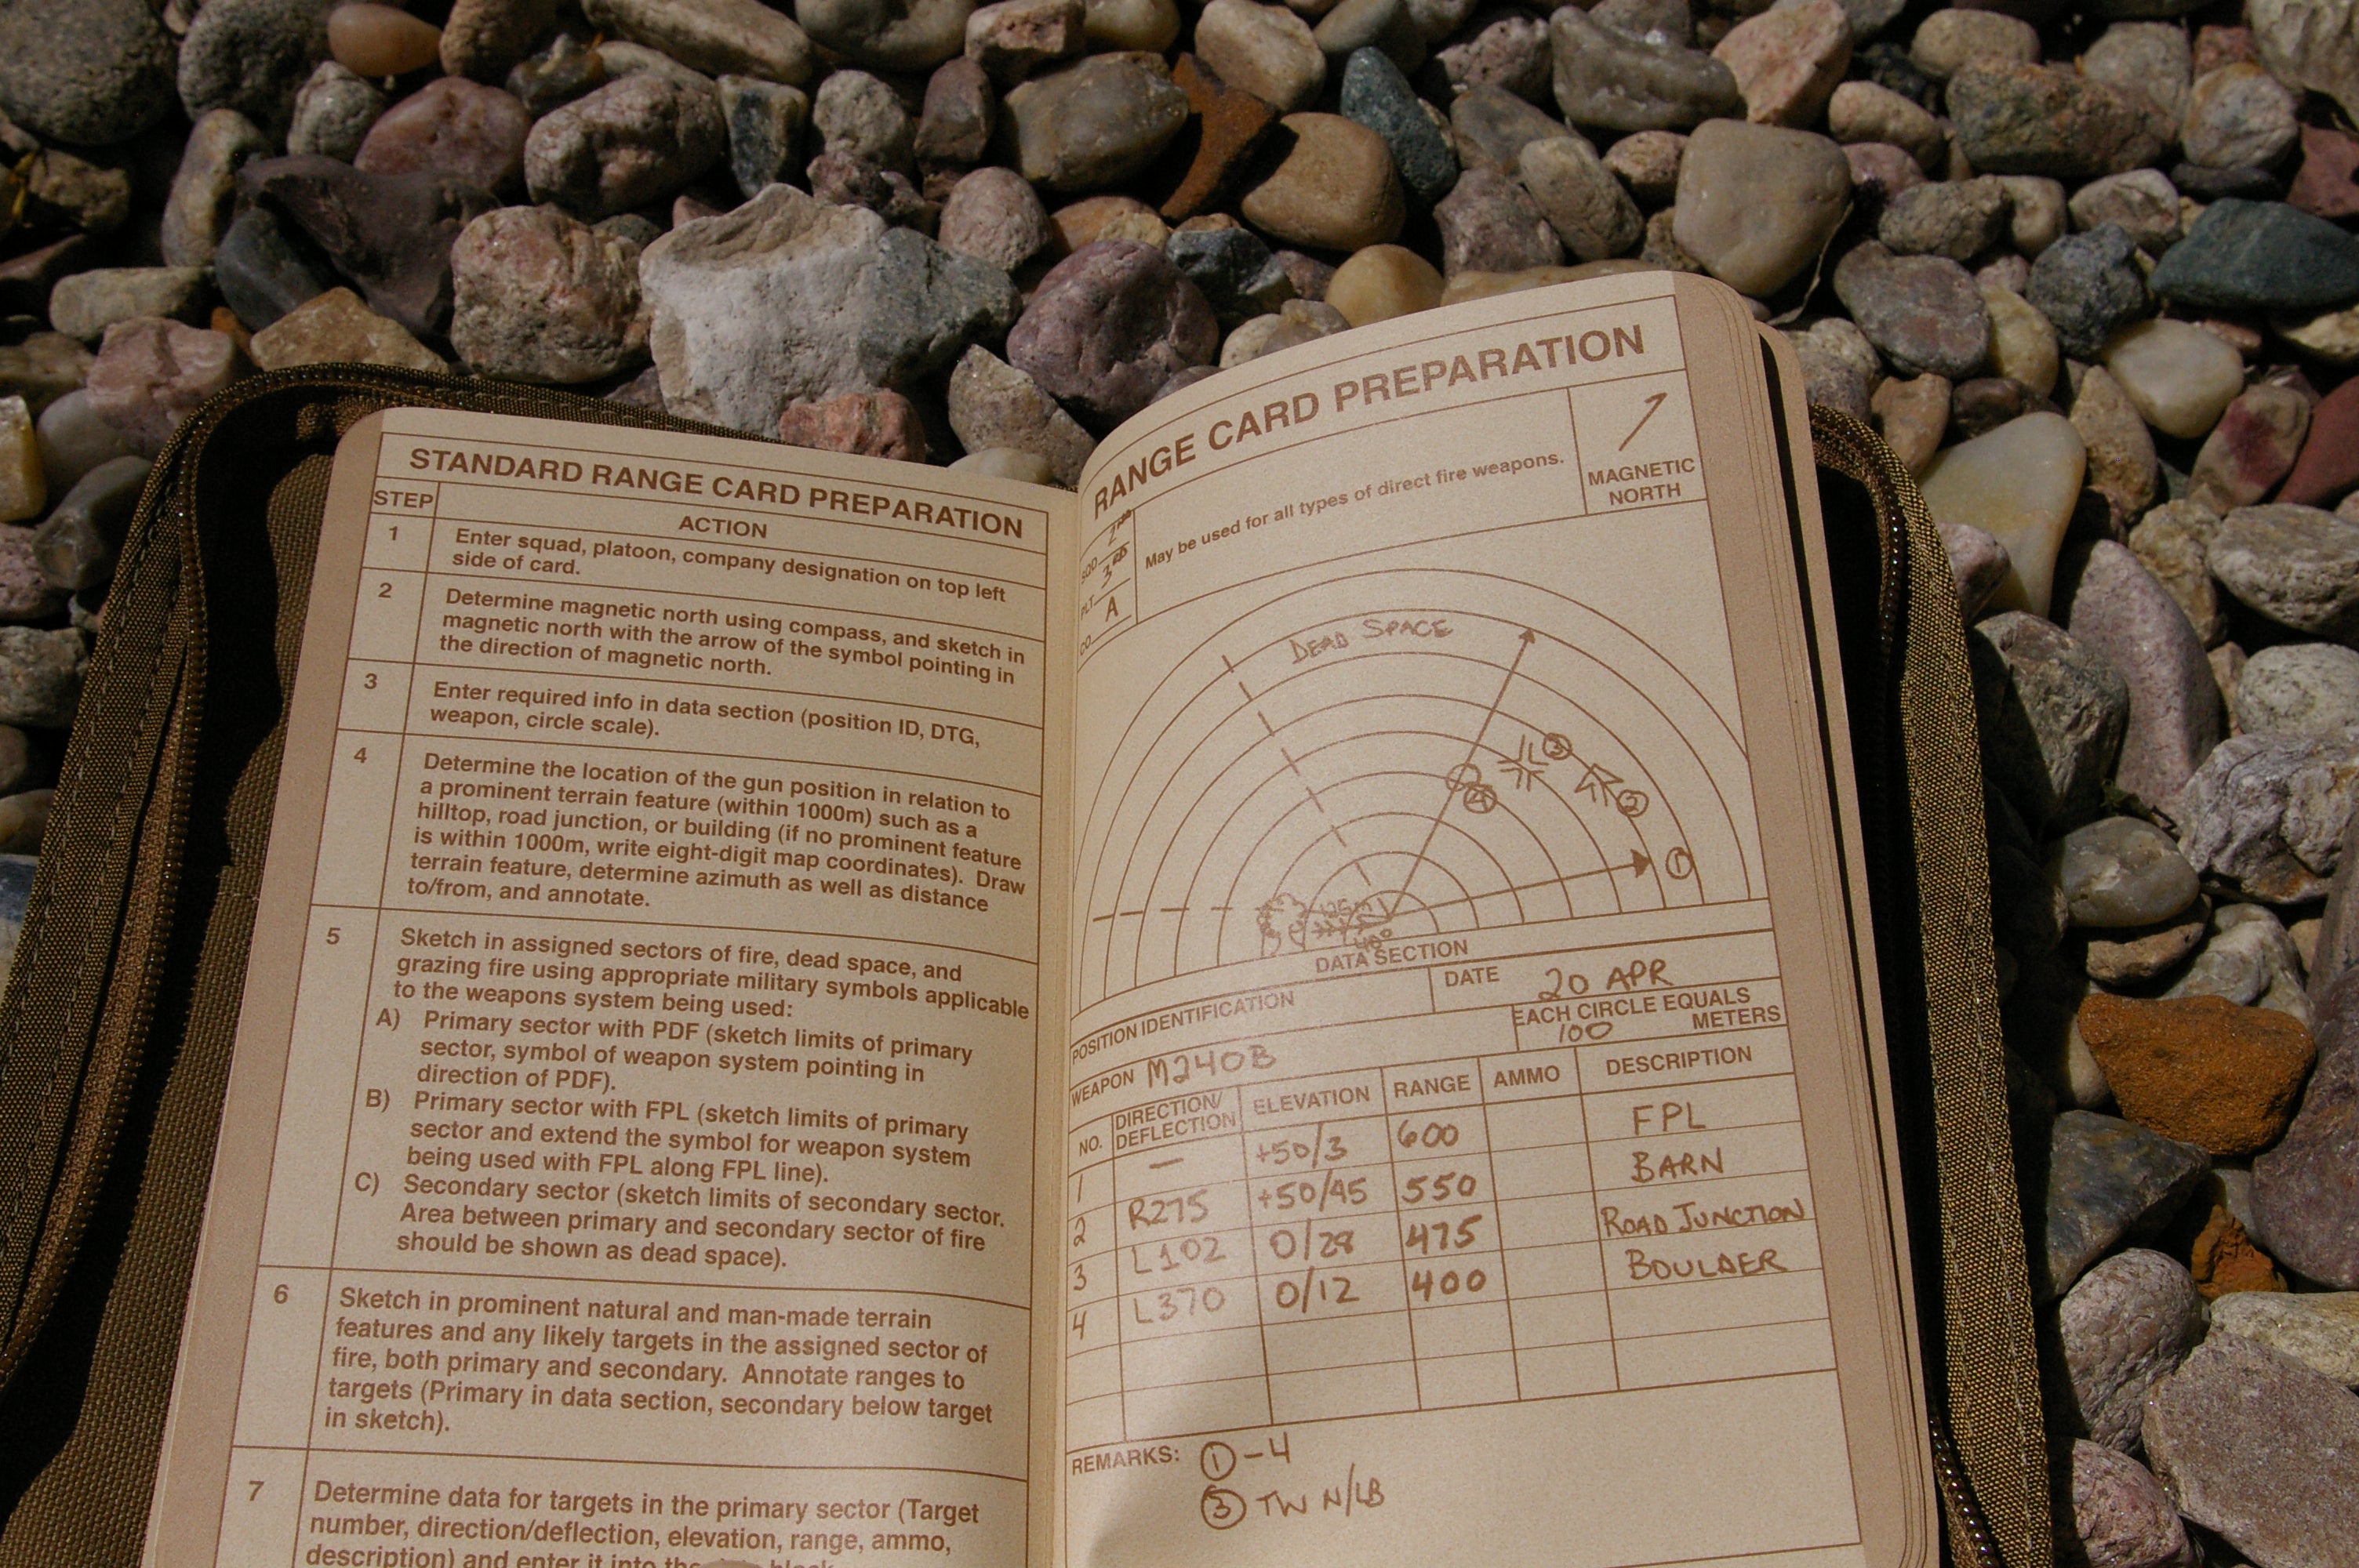 STANDARD RANGE CARD PREPARATION
STEP ACTION
1 Enter squad, platoon, company designation on top left
side of card.
2 Determine magnetic north using compass, and sketch in
magnetic north with the arrow of the symbol pointing in
the direction of magnetic north.
3 Enter required info in data section (position ID, DTG,
weapon, circle scale).
4 Determine the location of the gun position in relation to
a prominent terrain feature (within 1000m) such as a
hilltop, road junction, or building (if no prominent feature
is within 1000m, write eight-digit map coordinates). Draw
terrain feature, determine azimuth as well as distance
to/from, and annotate.
5 Sketch in assigned sectors of fire, dead space, and
grazing fire using appropriate military symbols applicable
to the weapons system being used:
A) Primary sector with PDF (sketch limits of primary
sector, symbol of weapon system pointing in
direction of PDF).
B) Primary sector with FPL (sketch limits of primary
sector and extend the symbol for weapon system
being used with FPL along FPL line).
C) Secondary sector (sketch limits of secondary sector.
Area between primary and secondary sector of fire
should be shown as dead space).
6 Sketch in prominent natural and man-made terrain
features and any likely targets in the assigned sector of
fire, both primary and secondary. Annotate ranges to
targets (Primary in data section, secondary below target
in sketch).
7 Determine data for targets in the primary sector (Target
number, direction/deflection, elevation, range, ammo,
description) and enter it into the block
RANGE CARD PREPARATION
SQD 2ND
PLT 3RD
CO A
May be used for all types of direct fire weapons.
MAGNETIC
NORTH
DEAD SPACE
3
4
2
1
125m
40°
DATA SECTION
POSITION IDENTIFICATION
DATE 20 APR
WEAPON M240B
EACH CIRCLE EQUALS
100 METERS
NO. DIRECTION/DEFLECTION ELEVATION RANGE AMMO DESCRIPTION
1 — +50/3 600 FPL
2 R275 +50/45 550 BARN
3 L102 0/28 475 ROAD JUNCTION
4 L370 0/12 400 BOULDER
REMARKS: 1 -4
3 TW N/LB